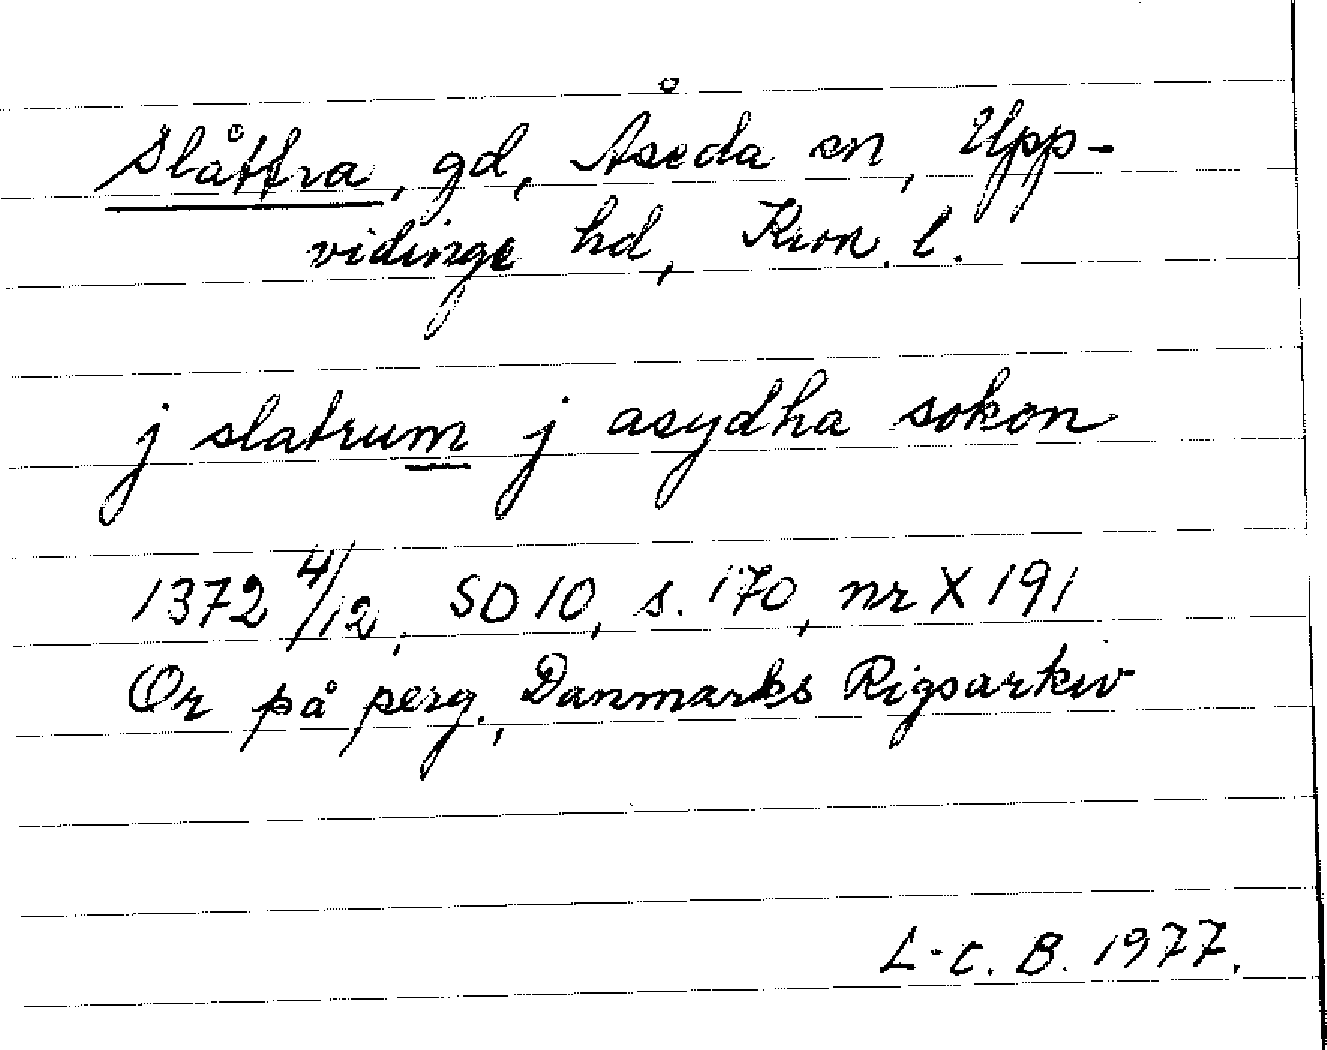 Slåttra, gd, Åseda sn, Upp-
vidinge hd, Kron. l.
j slatrum j asydha sokon
1372 4/12, SD 10, s. 170, nr X 191
Or på perg., Danmarks Rigsarkiv
L-C. B. 1977.